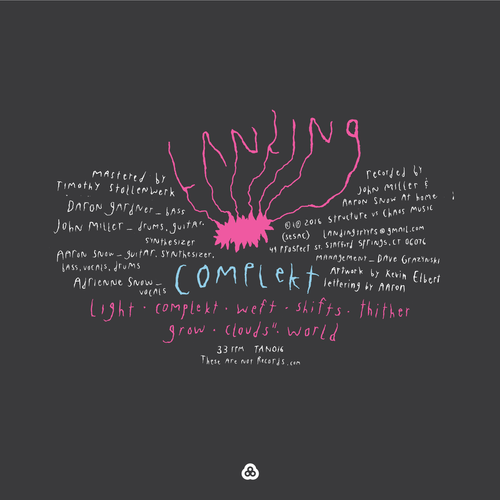 LANDING
mastered by
Timothy Stollenwerk
Daron Gardner _ bass
John Miller _ drums, guitar,
synthesizer
Aaron Snow _ guitar, synthesizer,
bass, vocals, drums
Adrienne Snow _
vocals
recorded by
John Miller &
Aaron Snow at home
©℗ 2016 Structure vs Chaos Music
(SESAC) landingscripts@gmail.com
49 Prospect St. Stafford Springs, CT 06076
management _ Dave Grazynski
artwork by Kevin Elbert
lettering by Aaron
COMPLEKT
light · complekt · weft · shifts · thither
grow · clouds II · world
33 RPM TAN016
These Are Not Records.com